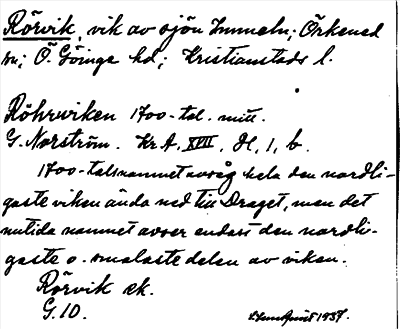 Rörvik, vik av sjön Immeln; Örkened
sn; Ö. Göinge hd; Kristianstads l.
Röhrwiken 1700-tal. mitt.
G. Norström. Kr. A. XVIII, H, 1, b.
1700-talsnamnet avsåg hela den nordli-
gaste viken ända ned till Draget, men det
nutida namnet avser endast den nordli-
gaste o. smalaste delen av viken.
Rörvik ek.
G. 10.
1937.